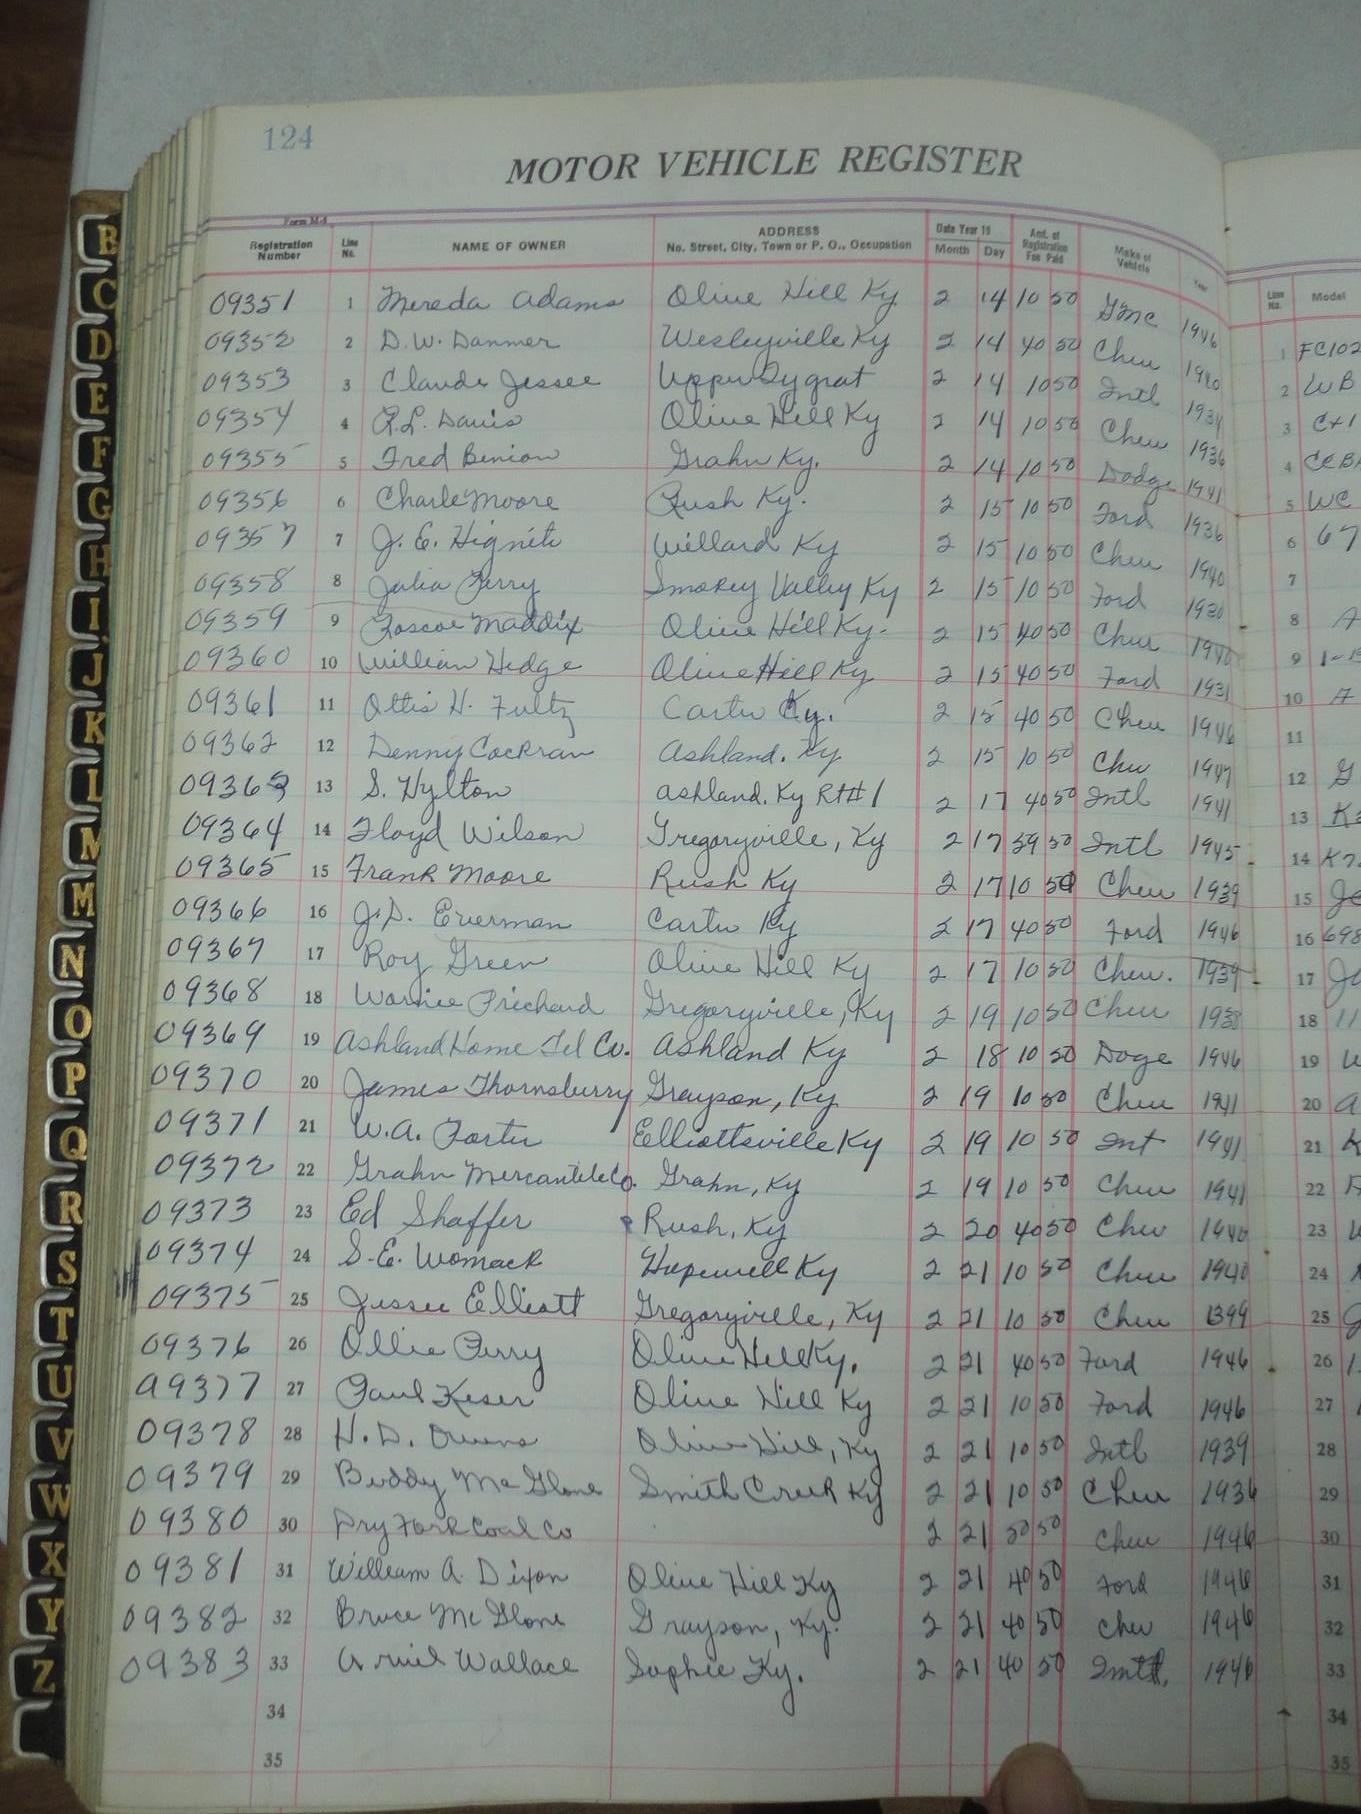 124
MOTOR VEHICLE REGISTER
Form M-4
Registration Number Line No. NAME OF OWNER ADDRESS No. Street, City, Town or P. O., Occupation Date Year 19 Month Day Amt. of Registration Fee Paid Make of Vehicle Year Line No. Model
09351 1 Mereda Adams Olive Hill Ky 2 14 10 50 Gmc 1946 1 FC102
09352 2 D.W. Danner Wesleyville Ky 2 14 40 50 Chev 1940 2 WB
09353 3 Claude Jessee Upper Tygrat 2 14 10 50 Intl 1934 3
09354 4 R.L. Davis Olive Hill Ky 2 14 10 50 Chev 1936 4
09355 5 Fred Binion Grahn Ky. 2 14 10 50 Dodge 1941 5 WC
09356 6 Charle Moore Rush Ky. 2 15 10 50 Ford 1936 6 67
09357 7 J. E. Hignite Willard Ky 2 15 10 50 Chev 1940 7
09358 8 Julia Perry Smokey Valley Ky 2 15 10 50 Ford 1930 8 A
09359 9 Roscoe Maddix Olive Hill Ky. 2 15 40 50 Chev 1940 9
09360 10 William Hedge Olive Hill Ky 2 15 40 50 Ford 1931 10 A
09361 11 Ottis H. Fultz Carter Ky. 2 15 40 50 Chev 1946 11
09362 12 Denny Cockran Ashland. Ky 2 15 10 50 Chev 1947 12 G
09363 13 S. Hylton Ashland. Ky Rt# 1 2 17 40 50 Intl 1941 13
09364 14 Floyd Wilson Gregoryville, Ky 2 17 59 50 Intl 1945 14
09365 15 Frank Moore Rush Ky 2 17 10 50 Chev 1939 15
09366 16 J.D. Everman Carter Ky 2 17 40 50 Ford 1946 16 698
09367 17 Roy Green Olive Hill Ky 2 17 10 50 Chev. 1939 17
09368 18 Prichard Gregoryville, Ky 2 19 10 50 Chev 1938 18
09369 19 Ashland Home Tel Co. Ashland Ky 2 18 10 50 Doge 1946 19
09370 20 James Thornsburry Grayson, Ky 2 19 10 50 Chev 1941 20
09371 21 W.A. Porter Elliottsville Ky 2 19 10 50 Int 1941 21
09372 22 Grahn Mercantile Co. Grahn, Ky 2 19 10 50 Chev 1941 22
09373 23 Ed Shaffer Rush, Ky 2 20 40 50 Chev 1940 23
09374 24 S.E. Womack Hopewell Ky 2 21 10 50 Chev 1940 24
09375 25 Jessee Elliott Gregoryville, Ky 2 21 10 50 Chev 25
09376 26 Ollie Perry Olive Hill Ky. 2 21 40 50 Ford 1946 26
09377 27 Paul Keser Olive Hill Ky 2 21 10 50 Ford 1946 27
09378 28 H.D. Owens Olive Hill, Ky 2 21 10 50 Intl 1939 28
09379 29 Buddy McGlone Smith Creek Ky 2 21 10 50 Chev 1936 29
09380 30 Dry Fork Coal Co 2 21 50 50 Chev 1946 30
09381 31 William A. Dixon Olive Hill Ky 2 21 40 50 Ford 1946 31
09382 32 Bruce McGlone Grayson, Ky. 2 21 40 50 Chev 1946 32
09383 33 Wallace Sophie Ky. 2 21 40 50 1946 33
34 34
35 35
B
C
D
E
F
G
H
I
J
K
L
M
M
N
O
P
Q
R
S
T
U
V
W
X
Y
Z